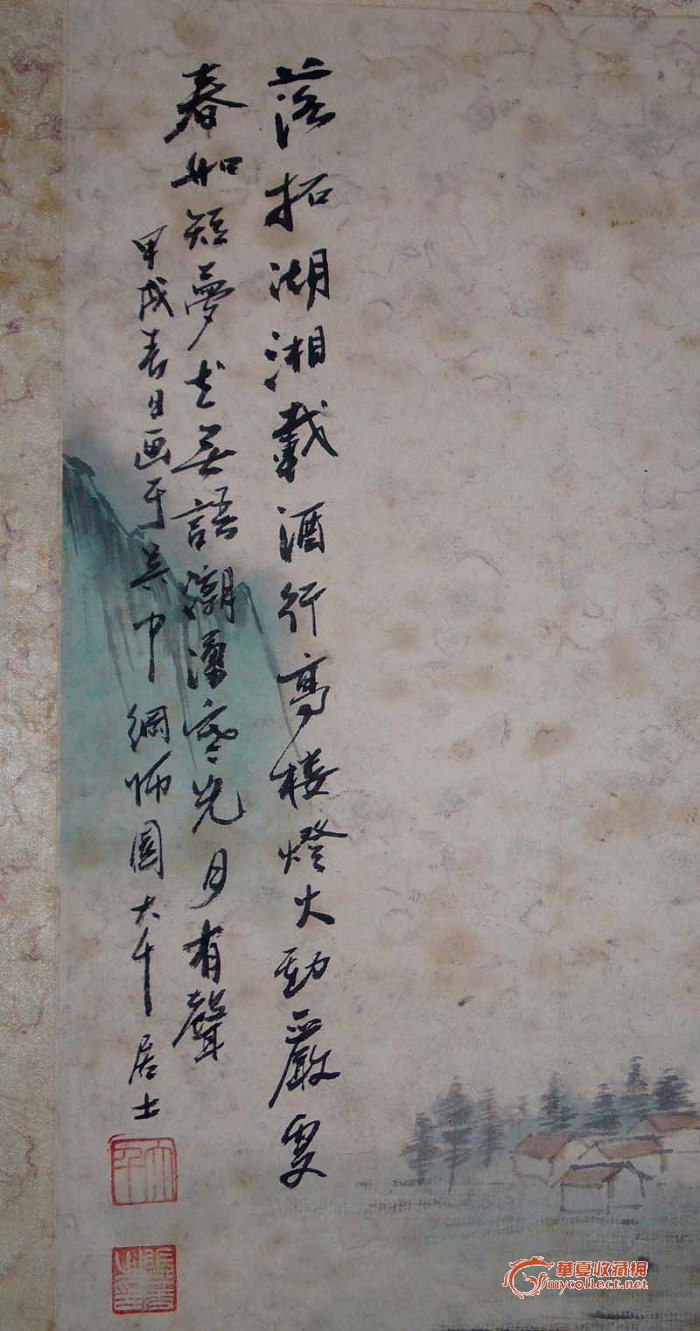 落拓湖湘載酒行高楼燈火動嚴更
春如短夢花无語潮寒光月有聲
甲戌春日画于吴中網師園大千居士
大千
華夏收藏網
mycollect.net